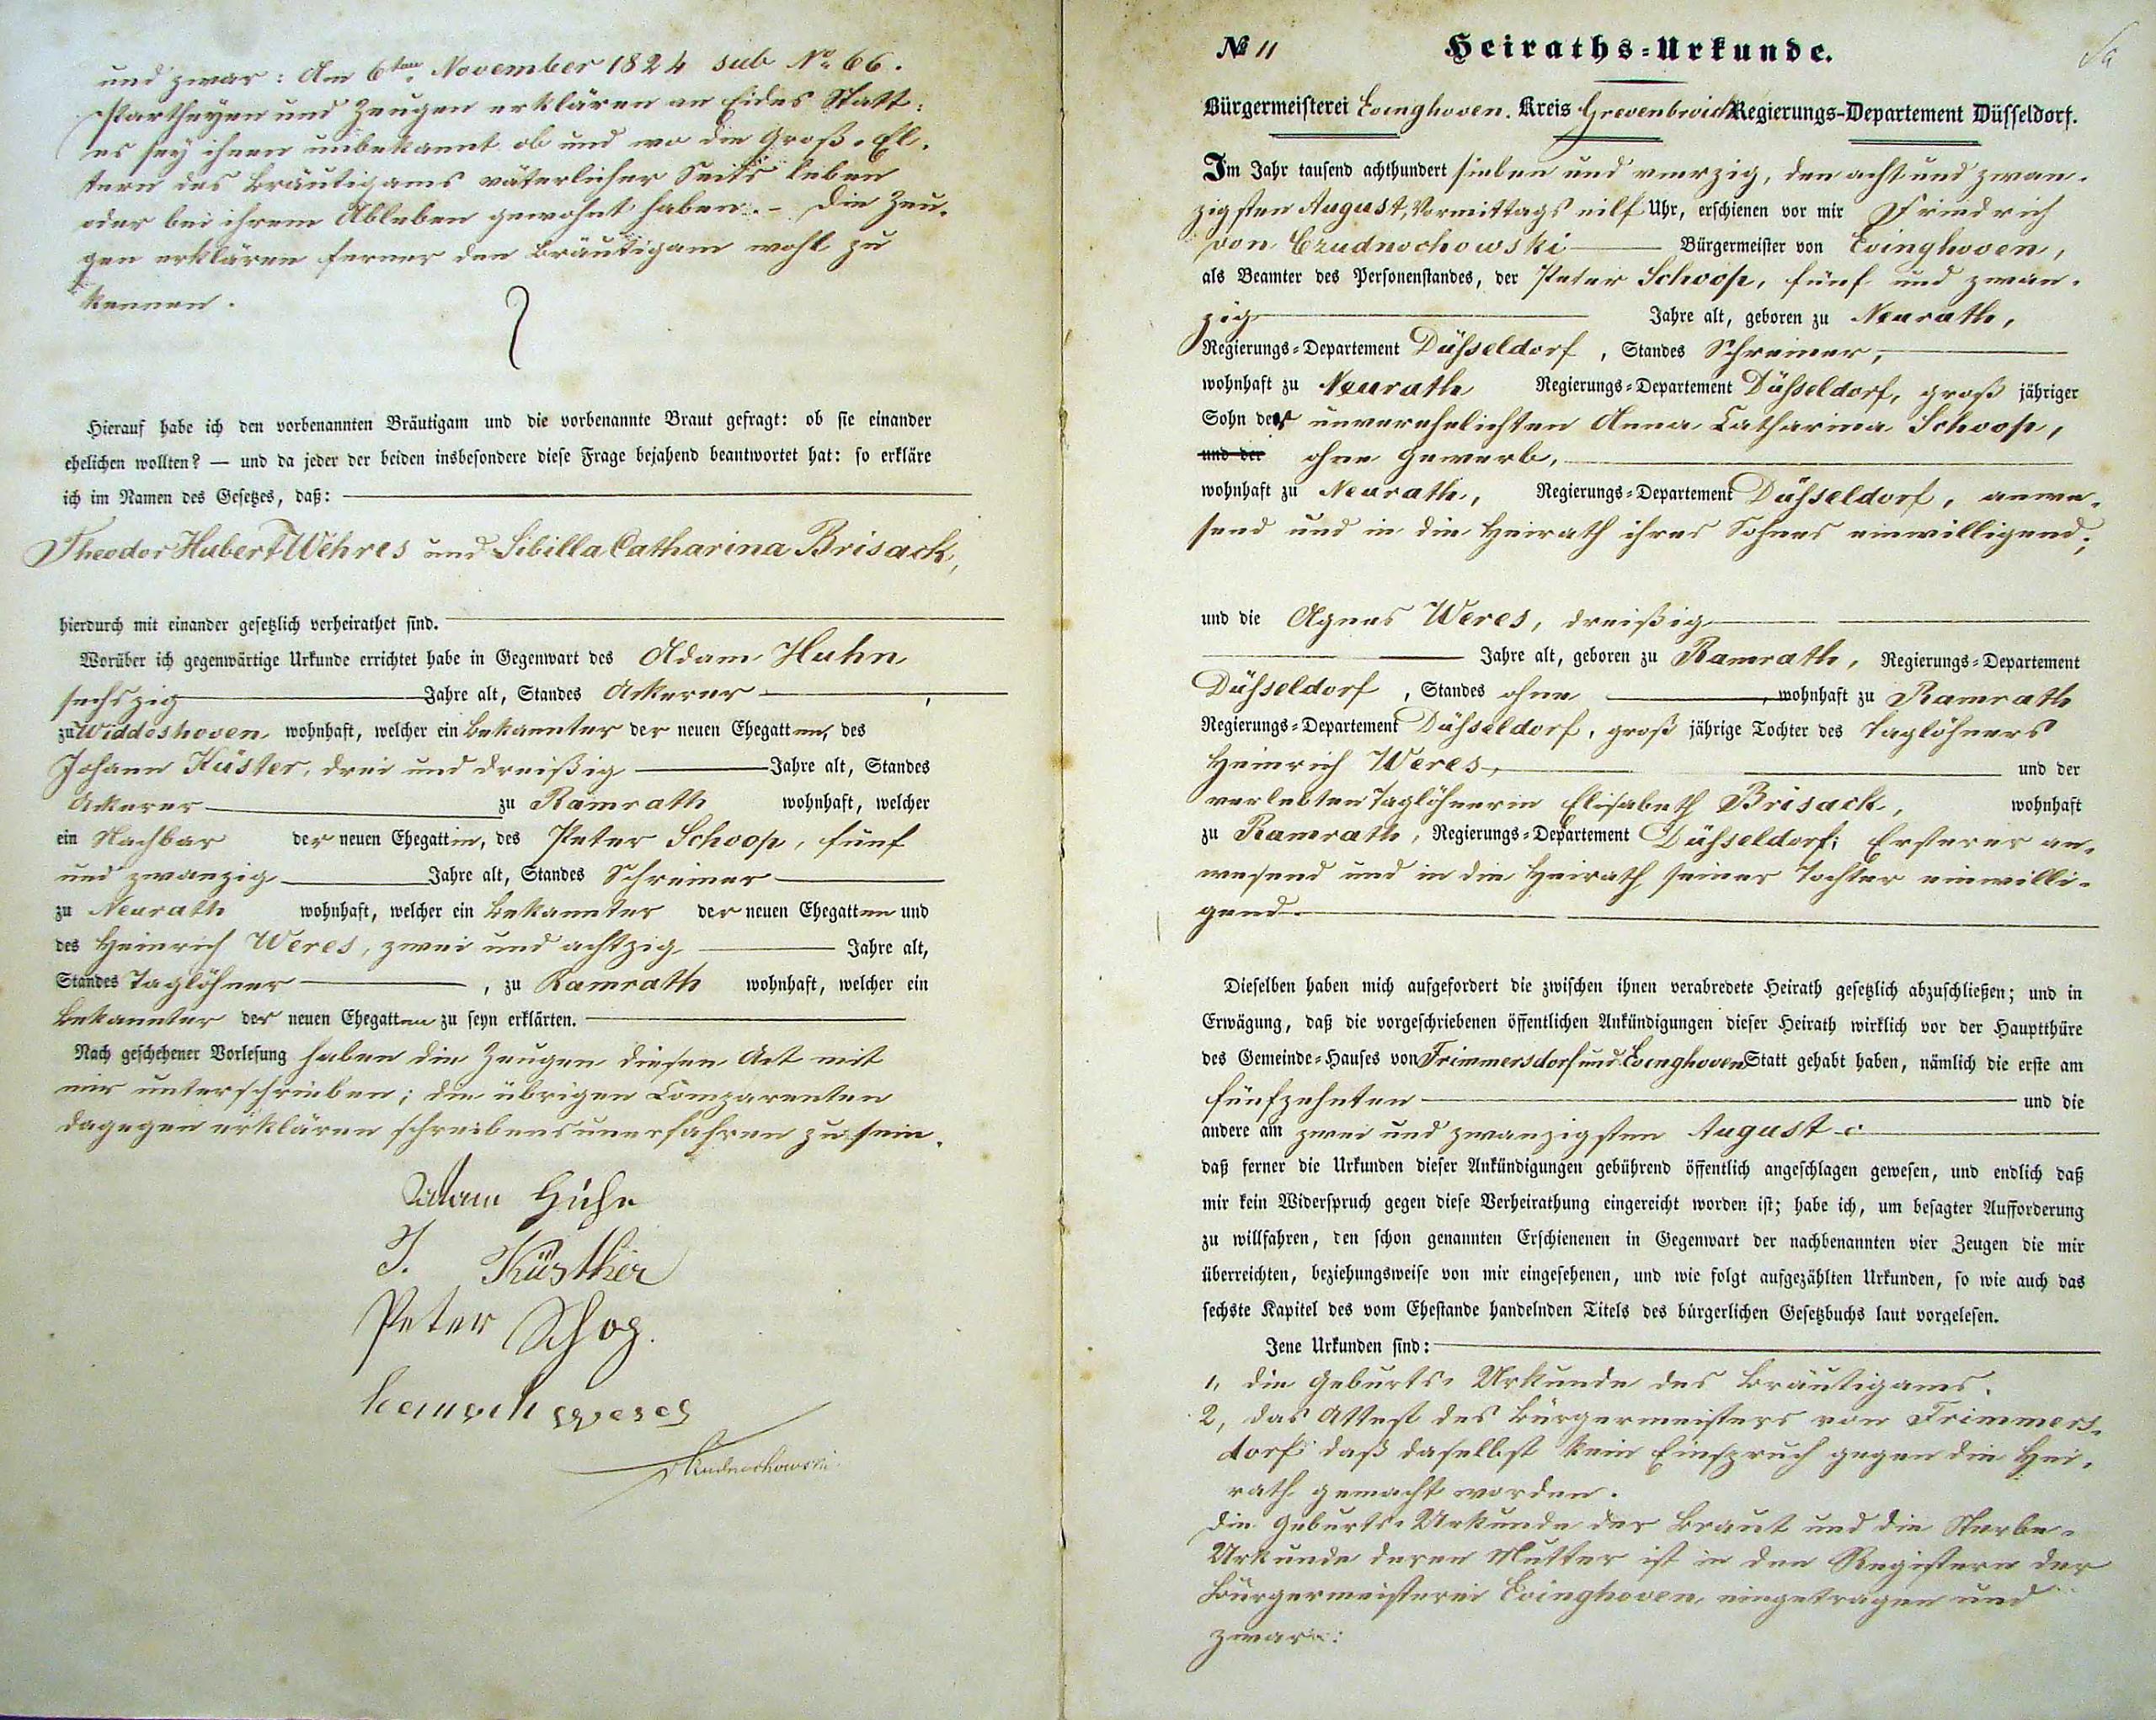 und zwar: Am 6ten November 1824 sub No 66.
Partheyen und Zeugen erklären an Eides Statt:
es sey ihnen unbekannt ob und wo die Groß-El-
tern des Bräutigams väterlicher Seits leben
oder bei ihrem Ableben gewohnt haben. - Die Zeu-
gen erklären ferner den Bräutigam wohl zu
kennen.
Hierauf habe ich den vorbenannten Bräutigam und die vorbenannte Braut gefragt: ob sie einander
ehelichen wollten? — und da jeder der beiden insbesondere diese Frage bejahend beantwortet hat: so erkläre
ich im Namen des Gesetzes, daß:
Theodor Hubert Wehres und Sibilla Catharina Brisack,
hierdurch mit einander gesetzlich verheirathet sind.
Worüber ich gegenwärtige Urkunde errichtet habe in Gegenwart des Adam Huhn
sechszig Jahre alt, Standes Ackerer,
zu Widdeshoven wohnhaft, welcher ein Bekannter der neuen Ehegatten, des
Johann Küster, drei und dreißig Jahre alt, Standes
Ackerer zu Ramrath wohnhaft, welcher
ein Nachbar der neuen Ehegattin, des Peter Schoop, fünf
und zwanzig Jahre alt, Standes Schreiner
zu Neurath wohnhaft, welcher ein Bekannter der neuen Ehegatten und
des Heinrich Weres, zwei und achtzig Jahre alt,
Standes Taglöhner, zu Ramrath wohnhaft, welcher ein
Bekannter der neuen Ehegatten zu seyn erklärten.
Nach geschehener Vorlesung haben die Zeugen diesen Act mit
mir unterschrieben; die übrigen Comparenten
dagegen erklären schreibensunerfahren zu sein.
Adam Huhn
J. Küsther
Peter Schop.
heinrich weres
vCzudnochowski
№ 11 Heiraths-Urkunde.
Bürgermeisterei Evinghoven. Kreis Grevenbroich Regierungs-Departement Düsseldorf.
Im Jahr tausend achthundert sieben und vierzig, den acht und zwan-
zigsten August, Vormittags eilf Uhr, erschienen vor mir Friedrich
von Czudnochowski Bürgermeister von Evinghoven,
als Beamter des Personenstandes, der Peter Schoop, fünf und zwan-
zig Jahre alt, geboren zu Neurath,
Regierungs-Departement Düsseldorf, Standes Schreiner,
wohnhaft zu Neurath Regierungs-Departement Düsseldorf, groß jähriger
Sohn der unverehelichten Anna Catharina Schoop,
und der ohne Gewerb,
wohnhaft zu Neurath, Regierungs-Departement Düsseldorf, anwe-
send und in die Heirath ihres Sohnes einwilligend;
und die Agnes Weres, dreißig
Jahre alt, geboren zu Ramrath, Regierungs-Departement
Düsseldorf, Standes ohne, wohnhaft zu Ramrath
Regierungs-Departement Düsseldorf, groß jährige Tochter des Taglöhners
Heinrich Weres, und der
verlebten Taglöhnerin Elisabeth Brisack, wohnhaft
zu Ramrath, Regierungs-Departement Düsseldorf; Ersterer an-
wesend und in die Heirath seiner Tochter einwilli-
gend.
Dieselben haben mich aufgefordert die zwischen ihnen verabredete Heirath gesetzlich abzuschließen; und in
Erwägung, daß die vorgeschriebenen öffentlichen Ankündigungen dieser Heirath wirklich vor der Hauptthüre
des Gemeinde-Hauses von Frimmersdorf und Evinghoven Statt gehabt haben, nämlich die erste am
fünfzehnten und die
andere am zwei und zwanzigsten August c.
daß ferner die Urkunden dieser Ankündigungen gebührend öffentlich angeschlagen gewesen, und endlich daß
mir kein Widerspruch gegen diese Verheirathung eingereicht worden ist; habe ich, um besagter Aufforderung
zu willfahren, den schon genannten Erschienenen in Gegenwart der nachbenannten vier Zeugen die mir
überreichten, beziehungsweise von mir eingesehenen, und wie folgt aufgezählten Urkunden, so wie auch das
sechste Kapitel des vom Ehestande handelnden Titels des bürgerlichen Gesetzbuchs laut vorgelesen.
Jene Urkunden sind:
1, die Geburts-Urkunde des Bräutigams.
2, das Attest des Bürgermeisters von Frimmers-
dorf daß daselbst kein Einspruch gegen die Hei-
rath gemacht worden.
Die Geburts-Urkunde der Braut und die Sterbe-
Urkunde deren Mutter ist in den Registern der
Bürgermeisterei Evinghoven eingetragen und
zwar: